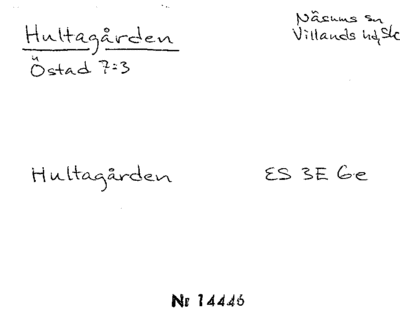 Hultagården
Östad 7:3
Näsums sn
Villands hd, Sk
Hultagården
ES 3E 6e
Nr 14446